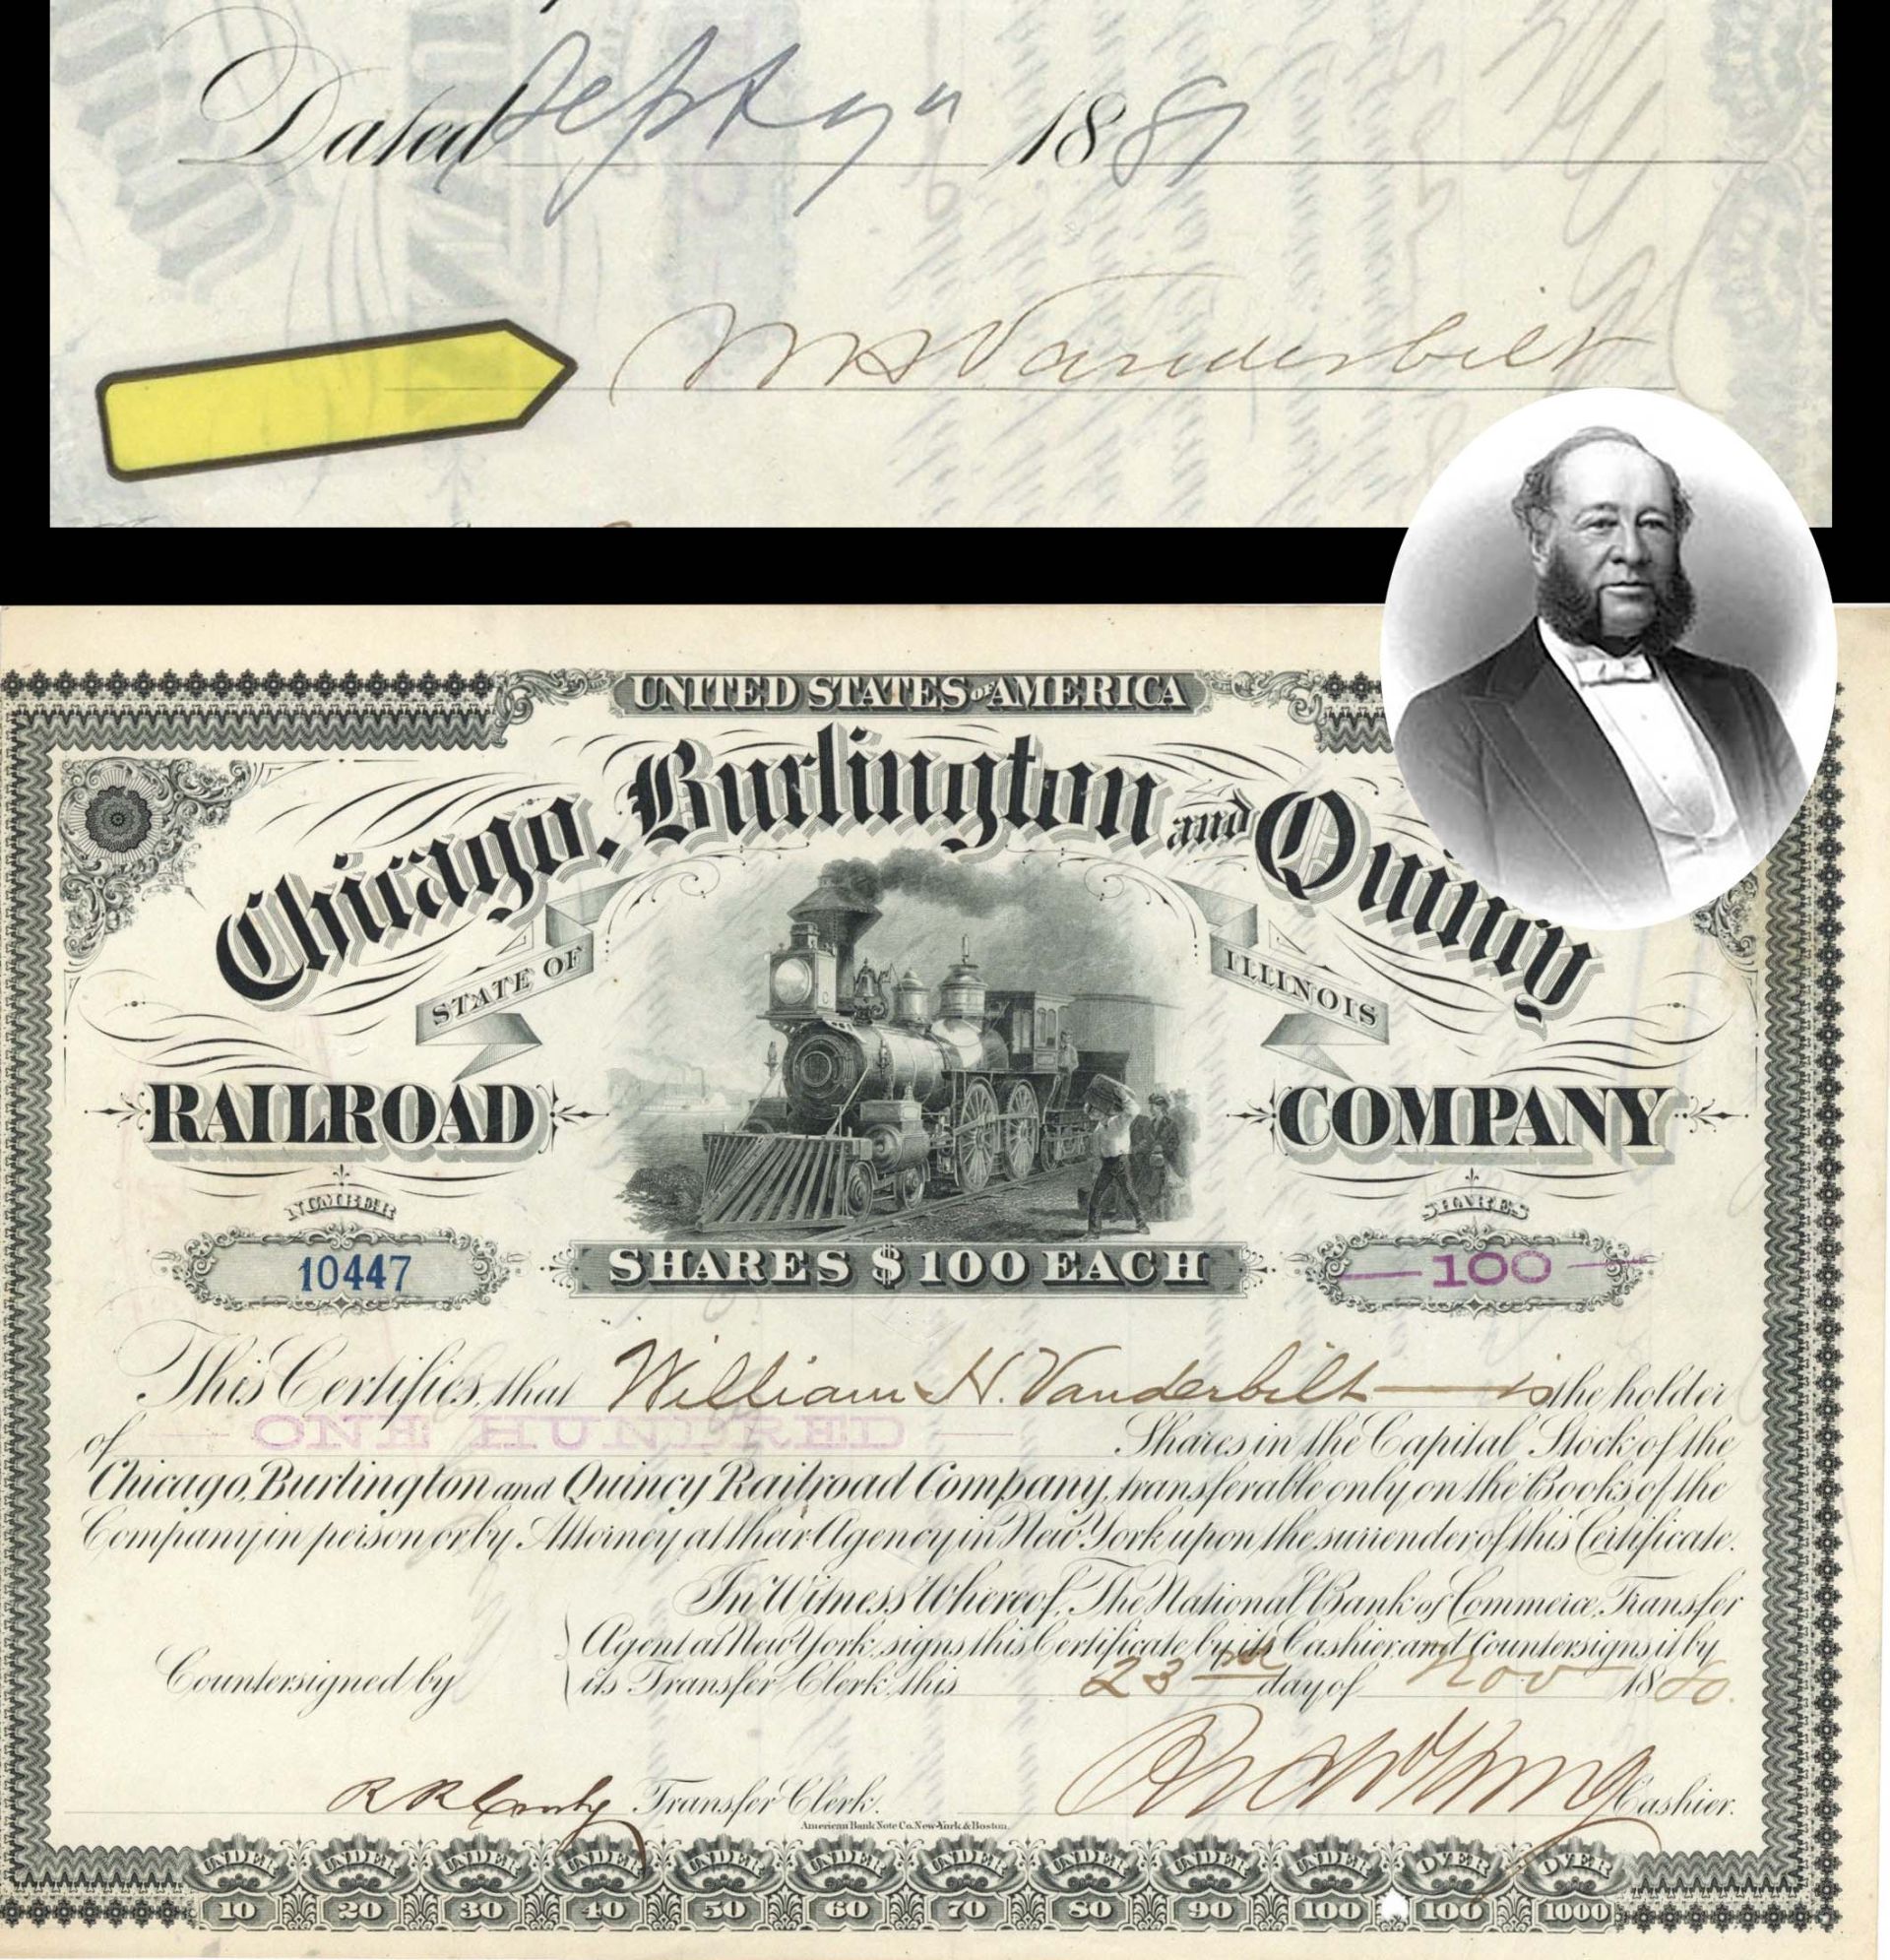 Dated Sept 9" 188
W H Vanderbilt
UNITED STATES OF AMERICA
Chicago, Burlington and Quincy
STATE OF ILLINOIS
RAILROAD COMPANY
NUMBER SHARES
10447 SHARES $100 EACH 100
This Certifies, that William H. Vanderbilt is the holder
of ONE HUNDRED Shares in the Capital Stock of the
Chicago, Burlington and Quincy Railroad Company, transferable only on the Books of the
Company in person or by Attorney at their Agency in New York upon the surrender of this Certificate.
In Witness Whereof, The National Bank of Commerce, Transfer
Agent at New York, signs this Certificate by its Cashier and Countersigns it by
Countersigned by its Transfer Clerk, this 23rd day of Nov 1880.
Transfer Clerk. Cashier.
American Bank Note Co. New-York & Boston.
UNDER UNDER UNDER UNDER UNDER UNDER UNDER UNDER UNDER UNDER OVER OVER
10 20 30 40 50 60 70 80 90 100 100 1000